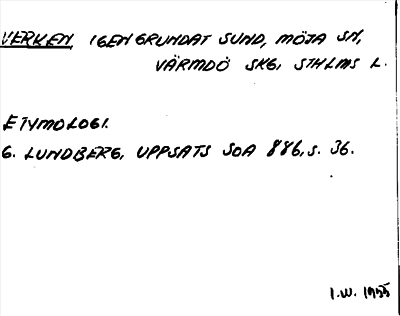 VERKEN, IGENGRUNDAT SUND, MÖJA SN,
VÄRMDÖ SKG, STHLMS L.
ETYMOLOGI.
G. LUNDBERG, UPPSATS SOA 886, S. 36.
I.W. 1955